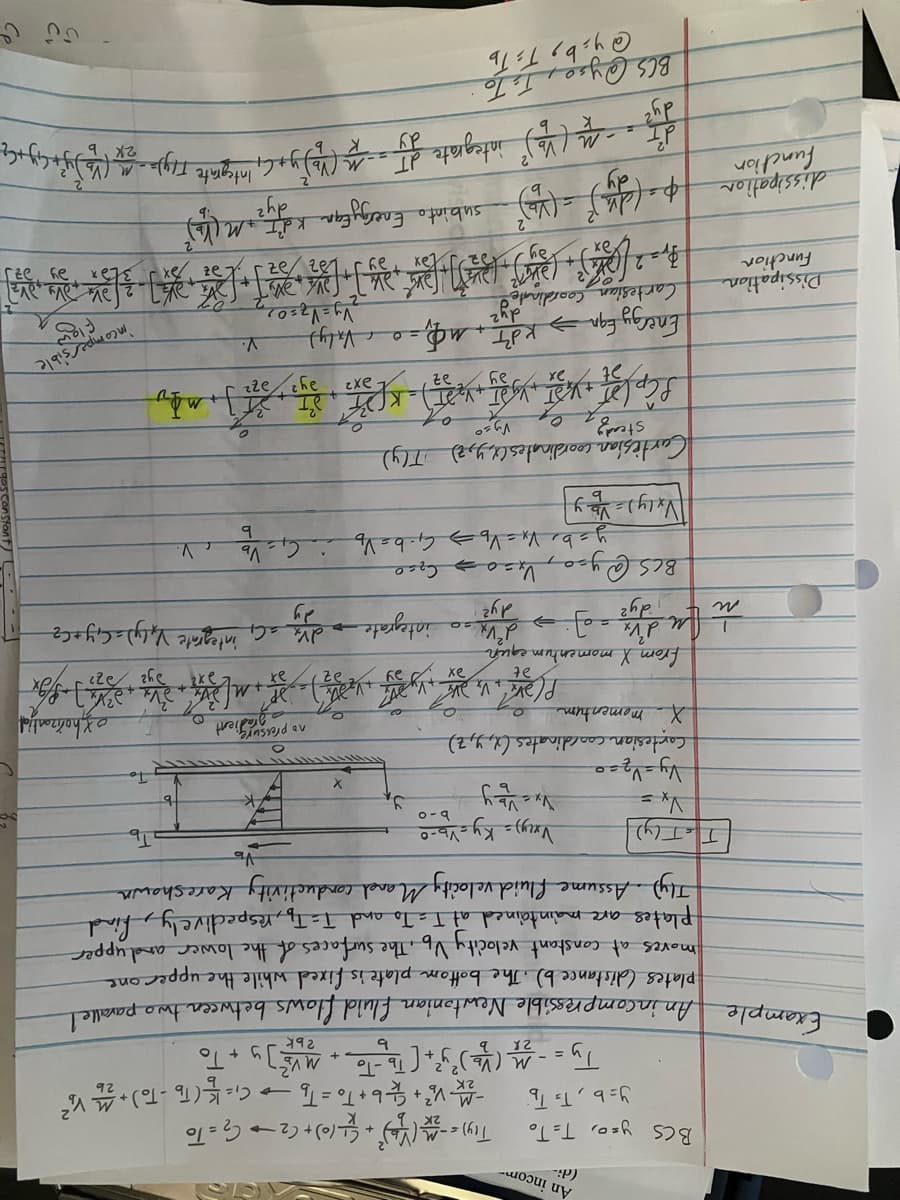 An incom
BCS y=0, T=To T(y)=-M/2K (Vb/b)² + C₁/K (0)+C2 → C2=To
y=b, T=Tb -M/2K Vb² + C₁/K b + To = Tb → C₁ = K/b (Tb-To) + M/2b Vb²
Ty = -M/2K (Vb/b)² y² + [Tb-To/b + MVb²/2bK] y + To
Example An incompressible Newtonian fluid flows between two parallel
plates (distance b). The bottom plate is fixed while the upper one
moves at constant velocity Vb. The surfaces of the lower and upper
plates are maintained at T=To and T=Tb, respectively, find
T(y). Assume fluid velocity M and conductivity K are shown
T=T(y) Vx(y) = Ky = Vb-0/b-0 Vb Tb
Vx = Vx = Vb/b y y K b
Vy=Vz=0 x To
Cartesian coordinates (x,y,z) no pressure gradient
X-momentum 0 0 0 0 0 0 0 0 x horizontal
ρ(∂Vx/∂t + Vx ∂Vx/∂x + Vy ∂Vx/∂y + Vz ∂Vx/∂z) = -∂P/∂x + M[∂²Vx/∂x² + ∂²Vx/∂y² + ∂²Vx/∂z²] + ρgx
from X momentum equn
1/M [M d²Vx/dy² = 0] ⇒ d²Vx/dy² = 0 integrate → dVx/dy = C₁ integrate Vx(y) = C₁y+C2
BCS @ y=0, Vx=0 ⇒ C2=0
y=b, Vx=Vb ⇒ C₁·b=Vb ∴ C₁ = Vb/b, V.
Vx(y) = Vb/b y
Cartesian coordinates (x,y,z) T(y)
steady 0 Vy=0 0 0 0
ρĈp(∂T/∂t + Vx ∂T/∂x + Vy ∂T/∂y + Vz ∂T/∂z) = K[∂²T/∂x² + ∂²T/∂y² + ∂²T/∂z²] + MΦv
Energy Eqn ⇒ K d²T/dy² + MΦv = 0, Vx(y) V. incompersible flow
Cartesian Coordinate Vy=Vz=0,
Dissipation Function Φv = 2[(∂Vx/∂x)² + (∂Vy/∂y)² + (∂Vz/∂z)²] + [∂Vy/∂x + ∂Vx/∂y]² + [∂Vz/∂y + ∂Vy/∂z]² + [∂Vx/∂z + ∂Vz/∂x]² - 2/3[∂Vx/∂x + ∂Vy/∂y + ∂Vz/∂z]²
dissipation function Φ = (dVx/dy)² = (Vb/b)² sub into Energy Eqn K d²T/dy² + M(Vb/b)²
d²T/dy² = -M/K (Vb/b)² integrate dT/dy = -M/K (Vb/b)² y + C₁ Integrate T(y) = -M/2K (Vb/b)² y² + C₁y + C2
BCS @ y=0, T=To
@ y=b, T=Tb